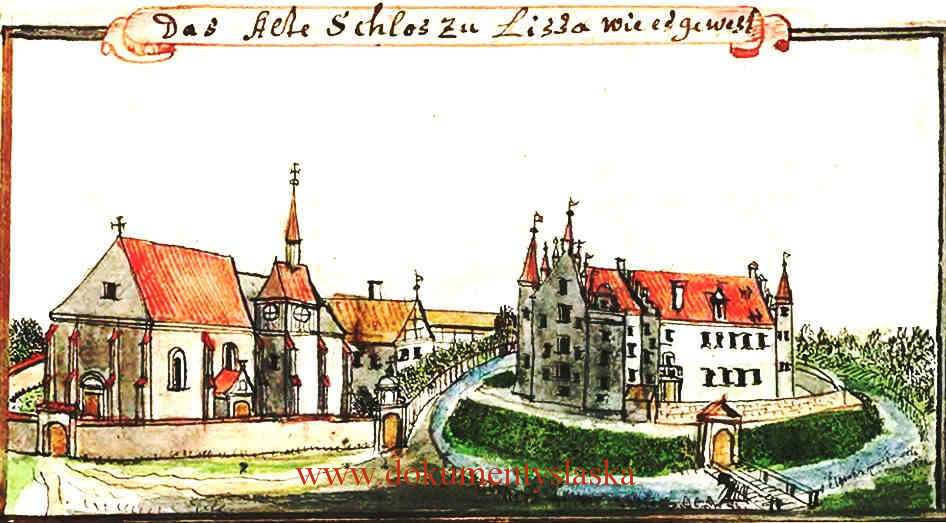 Das Alte Schlos zu Lissa wie es gewest
www.dokumentyslaska